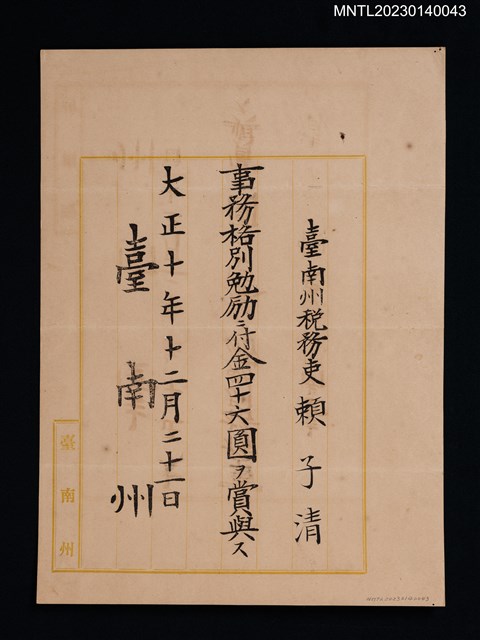 MNTL20230140043
臺南州稅務吏 賴子清
事務格別勉励ニ付金四十六圓ヲ賞與ス
大正十年十二月二十一日
臺南州
臺南州
MNTL20230140043